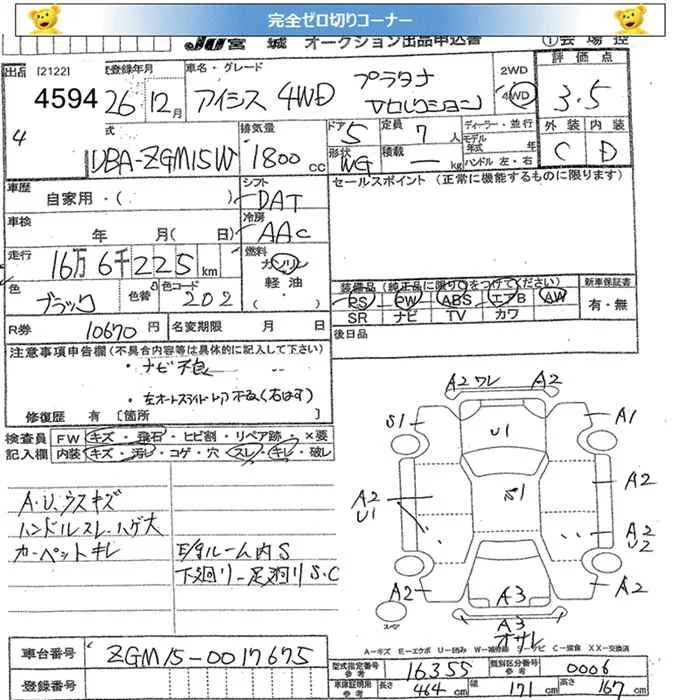 完全ゼロ切りコーナー
JU宮城 オークション出品申込書
①会場控
出品 [2122] 度登録年月 車名・グレード 2WD 評価点
4594 26年12月 アイシス 4WD プラタナ Vセレクション 4WD 3.5
4
型式 排気量 ドア 定員 ディーラー・並行 外装 内装
DBA-ZGM15W 1800cc 5 7人 モデル年式 年 C D
形状 WG 積載 ― kg ハンドル 左・右
車歴 自家用・( ) シフト DAT セールスポイント (正常に機能するものに限ります)
車検 年 月( 日) 冷房 AAC
走行 16万6千225km 燃料 ガソリン
軽油
色 ブラック 色替 色コード 202
装備品 (純正品に限り○をつけてください) 新車保証書
PS PW ABS エアB AW 有・無
SR ナビ TV カワ
R券 10670円 名変期限 月 日 後日品
注意事項申告欄 (不具合内容等は具体的に記入して下さい)
・ナビ不良
・左オートスライドドア不良(右はす)
修復歴 有 [箇所 ]
検査員 FW キズ・飛石・ヒビ割・リペア跡・×要
記入欄 内装 キズ・汚レ・コゲ・穴・スレ・キレ・破レ
A.U.ウスキズ
ハンドルスレ・ハゲ大
カーペットキレ
E/gルーム内S
下廻り-足廻りS.C
A2ワレ A2
S1 U1 A1
A2 U1 S1 A2
A2 U2
A2 A3 A2
A3
オサレ
スペア
A-キズ E-エクボ U-凹み W-補修跡 S-サビ C-腐食 XX-交換済
車台番号 ZGM15-0017675
登録番号
型式指定番号 参考 16355 類別区分番号 参考 0006
車庫証明用 参考 長さ 464cm 幅 171cm 高さ 167cm